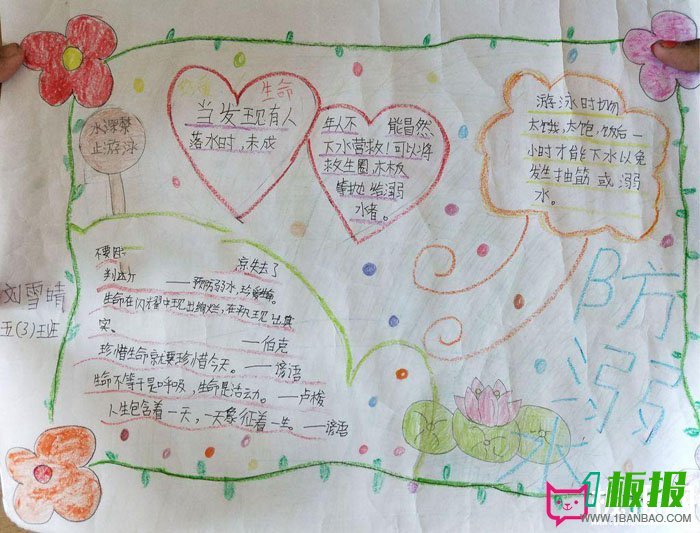 水深禁
止游泳
生命
当发现有人
落水时,未成
年人不 能冒然
下水营救!可以将
救生圈,木板
等抛给溺
水者。
游泳时切勿
太饿,太饱,饭后一
小时才能下水以免
发生抽筋或溺
水。
不要因 凉失去了
——预防溺水,珍爱生命。
生命在闪耀中现出绚烂,在平凡中现出真
实。 ——伯克
珍惜生命就要珍惜今天。——谚语
生命不等于是呼吸,生命是活动。——卢梭
人生包含着一天,一天象征着一生。——谚语
刘雪晴
五(3)班
防
溺
水
1板报
WWW.1BANBAO.COM